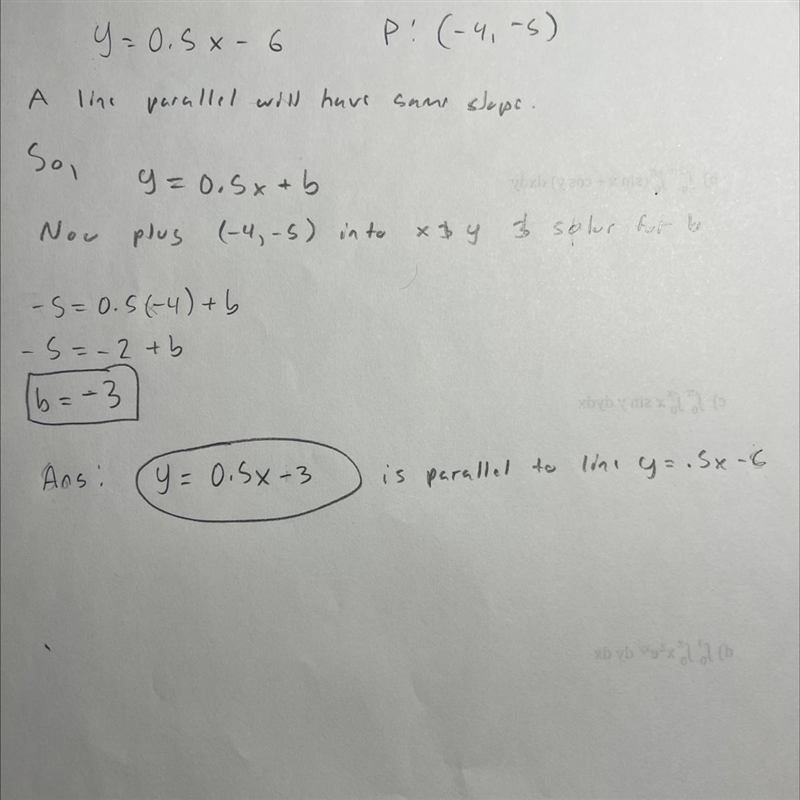 y = 0.5x - 6 P: (-4, -5)
A line parallel will have same slope.
So, y = 0.5x + b
Now plug (-4, -5) into x & y & solve for b
-5 = 0.5(-4) + b
-5 = -2 + b
b = -3
Ans: y = 0.5x - 3 is parallel to line y = .5x - 6